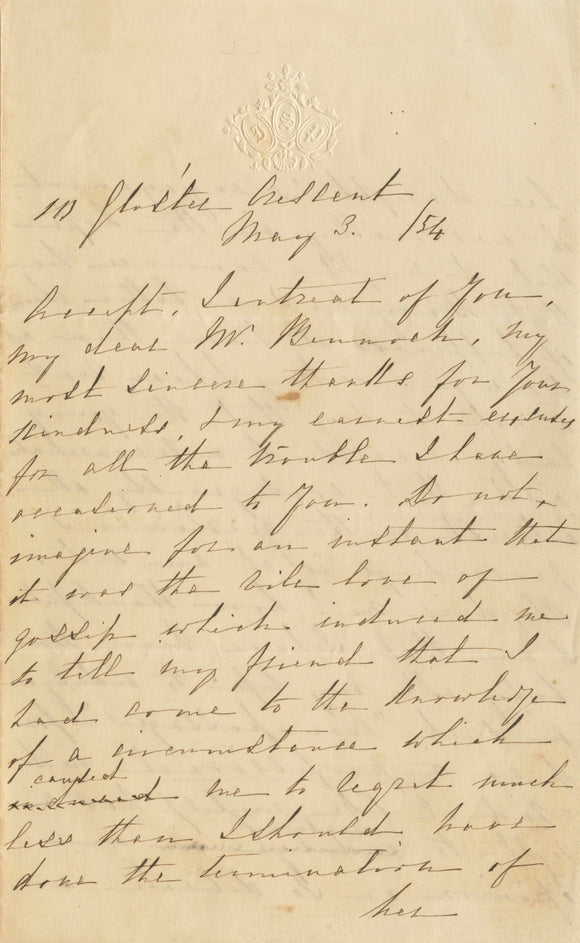 Glo'ster Crescent
May 3. /54
Accept, I entreat of You,
my dear Mr. Bennoch, my
most sincere thanks for Your
kindness, & my earnest excuses
for all the trouble I have
occasioned to You. Do not,
imagine for an instant that
it was the vile love of
gossip which induced me
to tell my friend that I
had come to the knowledge
of a circumstance which
caused
me to regret much
less than I should have
done the termination of
her